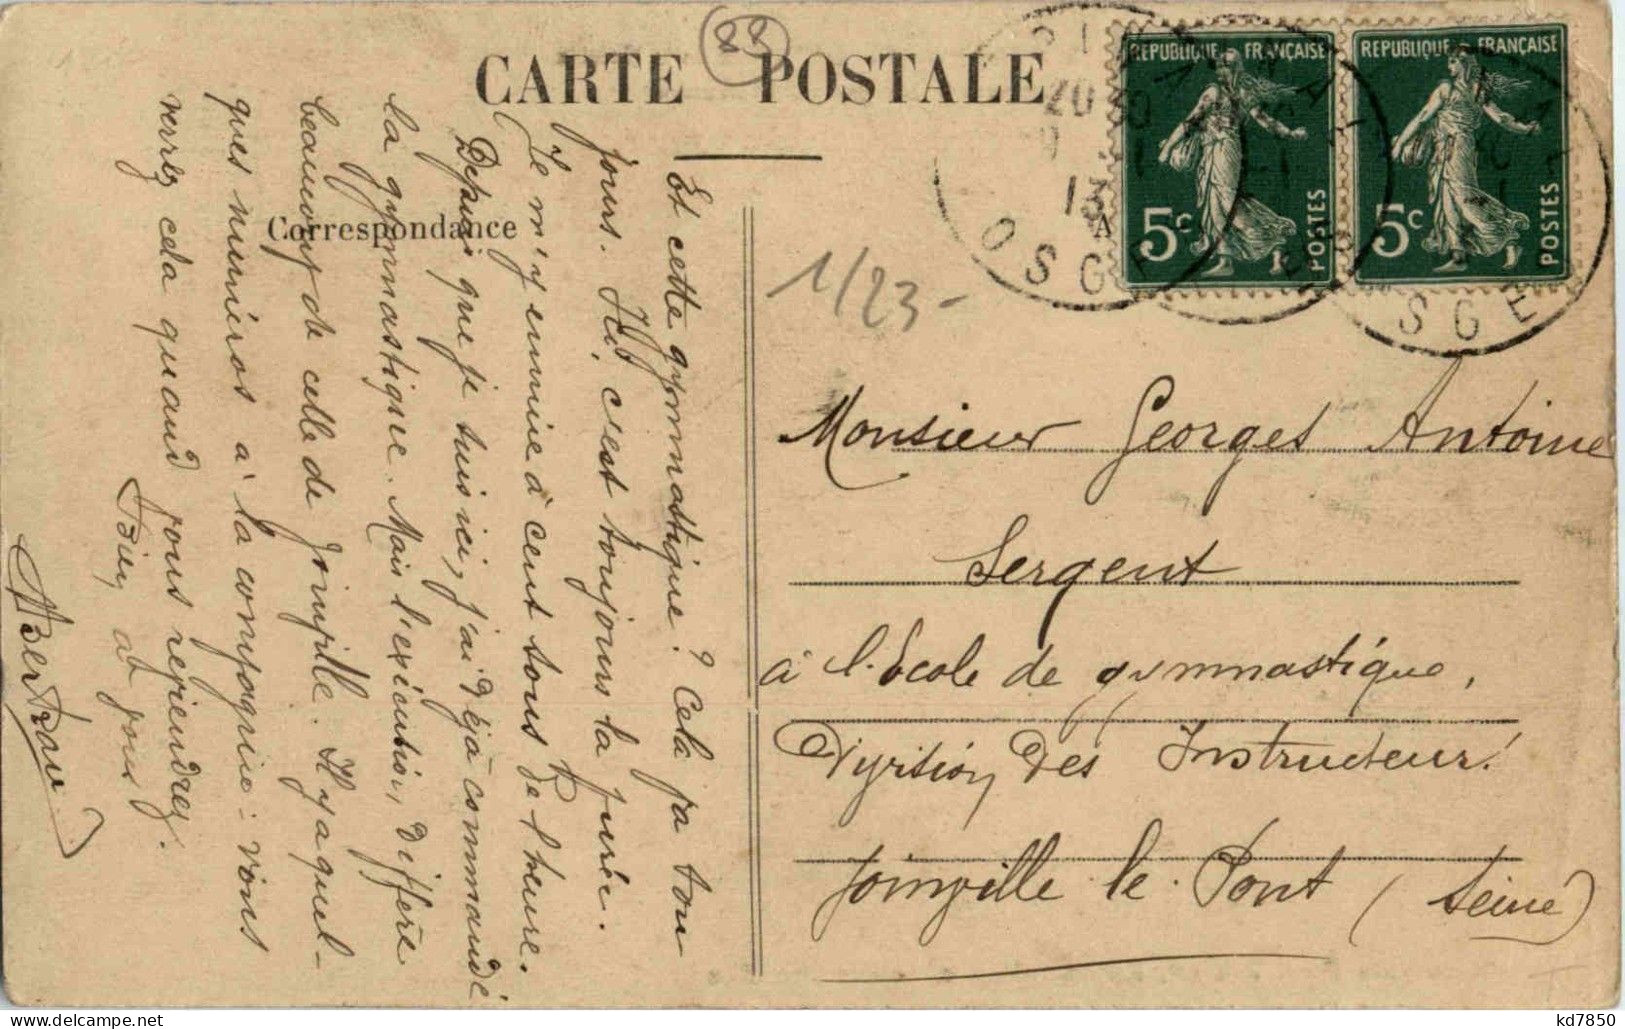 88
CARTE POSTALE
Correspondance
RÉPUBLIQUE FRANÇAISE
5c
POSTES
RÉPUBLIQUE FRANÇAISE
5c
POSTES
20 30
13
OSGE
SGE
1/23-
Et cette gymnastique ? Cela va ton
jours. Ici, c'est toujours la purée.
Je m'y ennuie à cent sous de l'heure.
Depuis que je suis ici, j'ai déjà commandé
la gymnastique. Mais l'exécution, diffère
beaucoup de celle de Joinville. Il y a quel-
ques numéros à la compagnie = vous
verrez cela quand vous reviendrez.
Bien à vous
Bertrand
Monsieur Georges Antoine
Sergent
à l'École de gymnastique,
Division des Instructeurs
Joinville le Pont (Seine)
kd7850